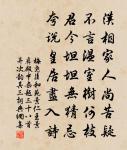 漢相家人尚苦疑
不言溫室樹何枝
君今坦坦無猜忌
夸說皇居盡入詩
梅堯臣和范景仁王景
彝殿中雜題三十八首
并次韻其三詞典網集